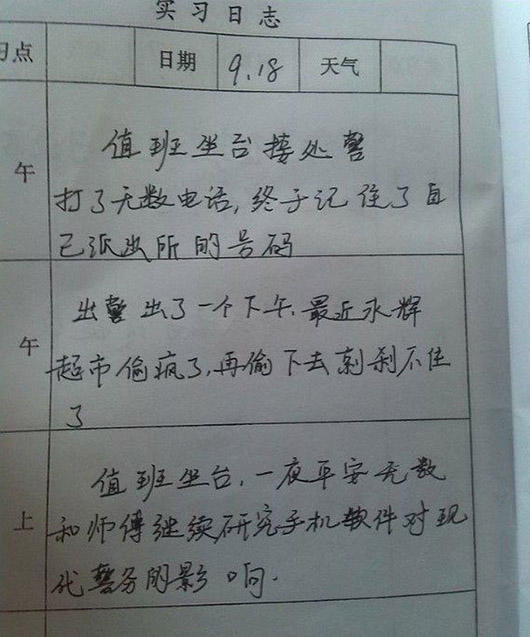 实习日志
习点 日期 9.18 天气
午 值班坐台接处警
打了无数电话,终于记住了自
己派出所的号码
午 出警出了一个下午.最近永辉
超市偷疯了,再偷下去刹刹不住
了
上 值班坐台,一夜平安无数
和师傅继续研究手机软件对现
代警务的影响.